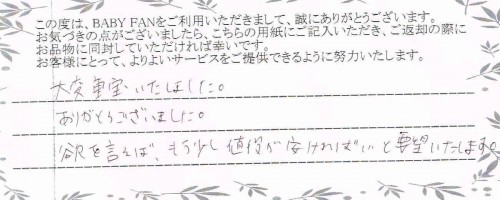 この度は、BABY FANをご利用いただきまして、誠にありがとうございます。
お気づきの点がございましたら、こちらの用紙にご記入いただき、ご返却の際に
お品物に同封していただければ幸いです。
お客様にとって、よりよいサービスをご提供できるように努力いたします。
大変重宝いたしました。
ありがとうございました。
欲を言えば、もう少し値段が安ければいいと要望いたします。